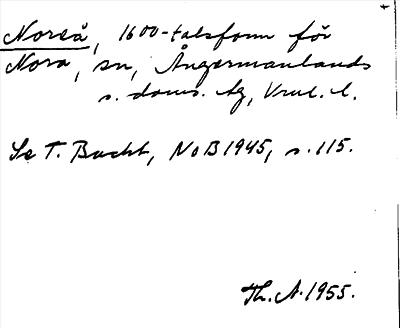 Noreå, 1600-talsform för
Nora, sn, Ångermanlands
s. doms. hg, Vnrl. l.
Se T. Bucht, NoB 1945, s. 115.
Th. A. 1955.